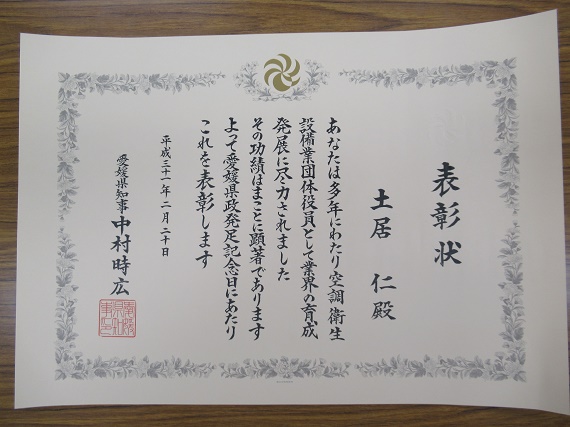 表彰状
土居 仁殿
あなたは多年にわたり空調衛生
設備業団体役員として業界の育成
発展に尽力されました
その功績はまことに顕著であります
よって愛媛県政発足記念日にあたり
これを表彰します
平成三十一年二月二十日
愛媛県知事 中村時広